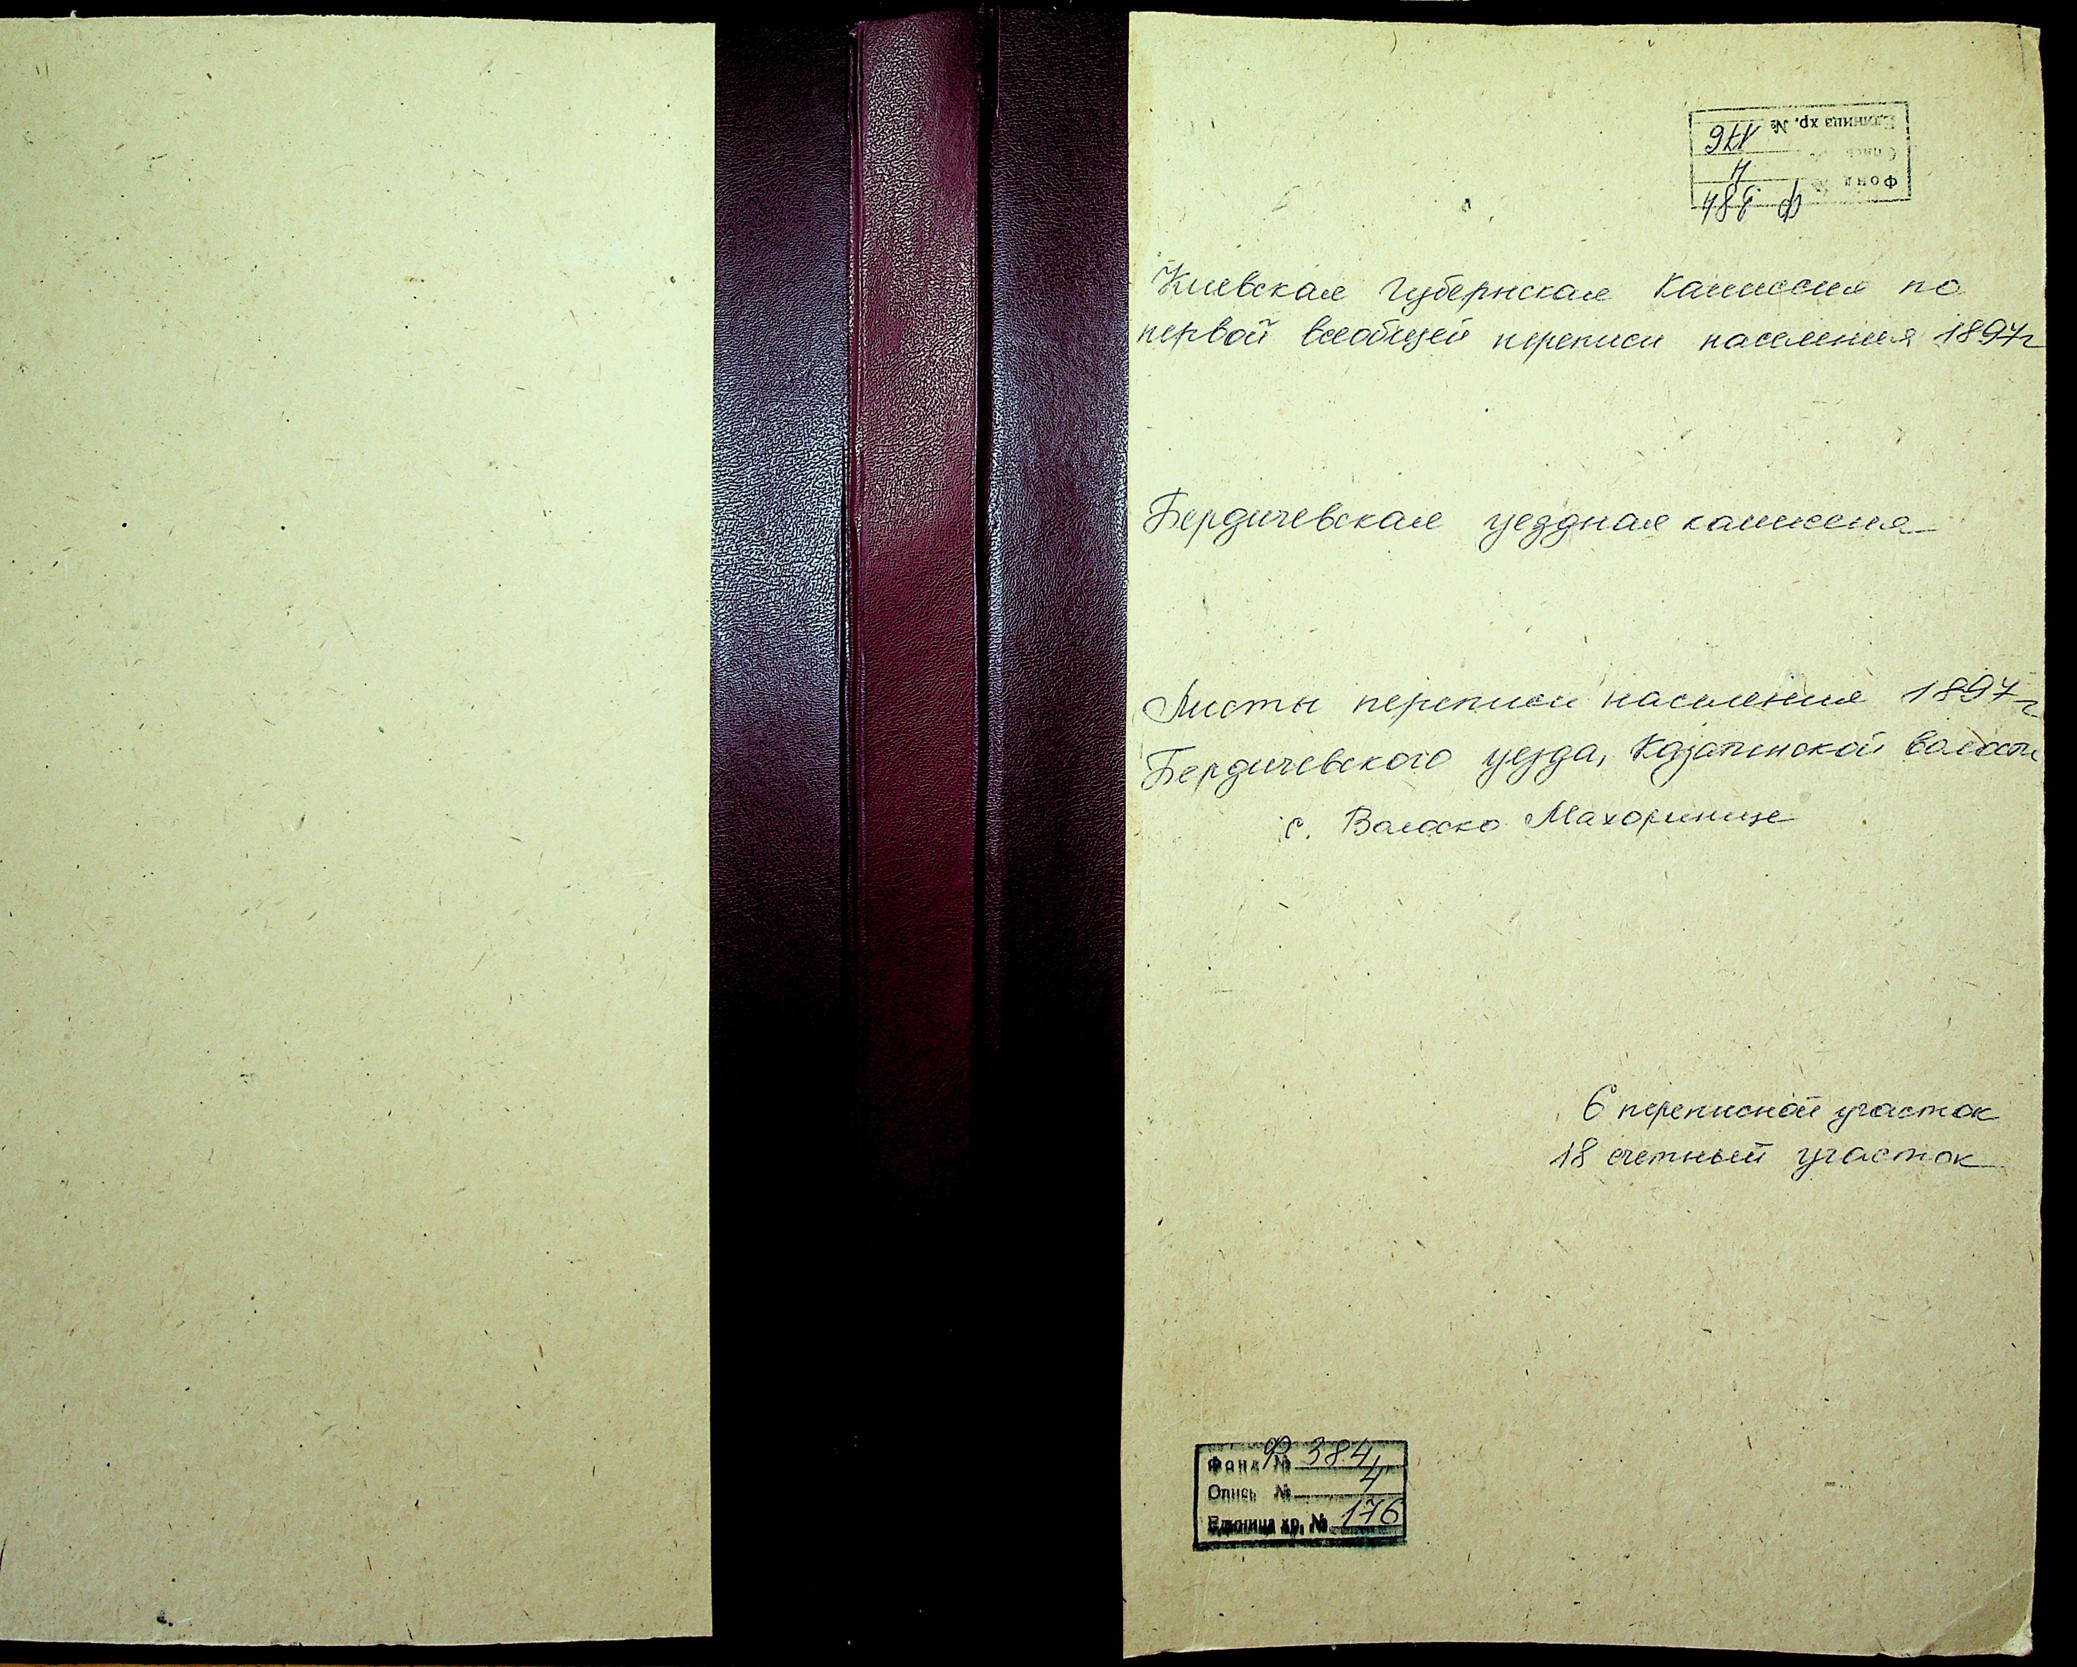 Единица хр. № 176
Опись № 4
Фонд № ф. 384
Киевская губернская комиссия по
первой всеобщей переписи населения 1897г
Бердичевская уездная комиссия
Листы переписи населения 1897г
Бердичевского уезда, Казатинской волости
с. Волоско Махоринце
6 переписной участок
18 счетный участок
Фонд № Ф 384
Опись № 4
Единица хр. № 176